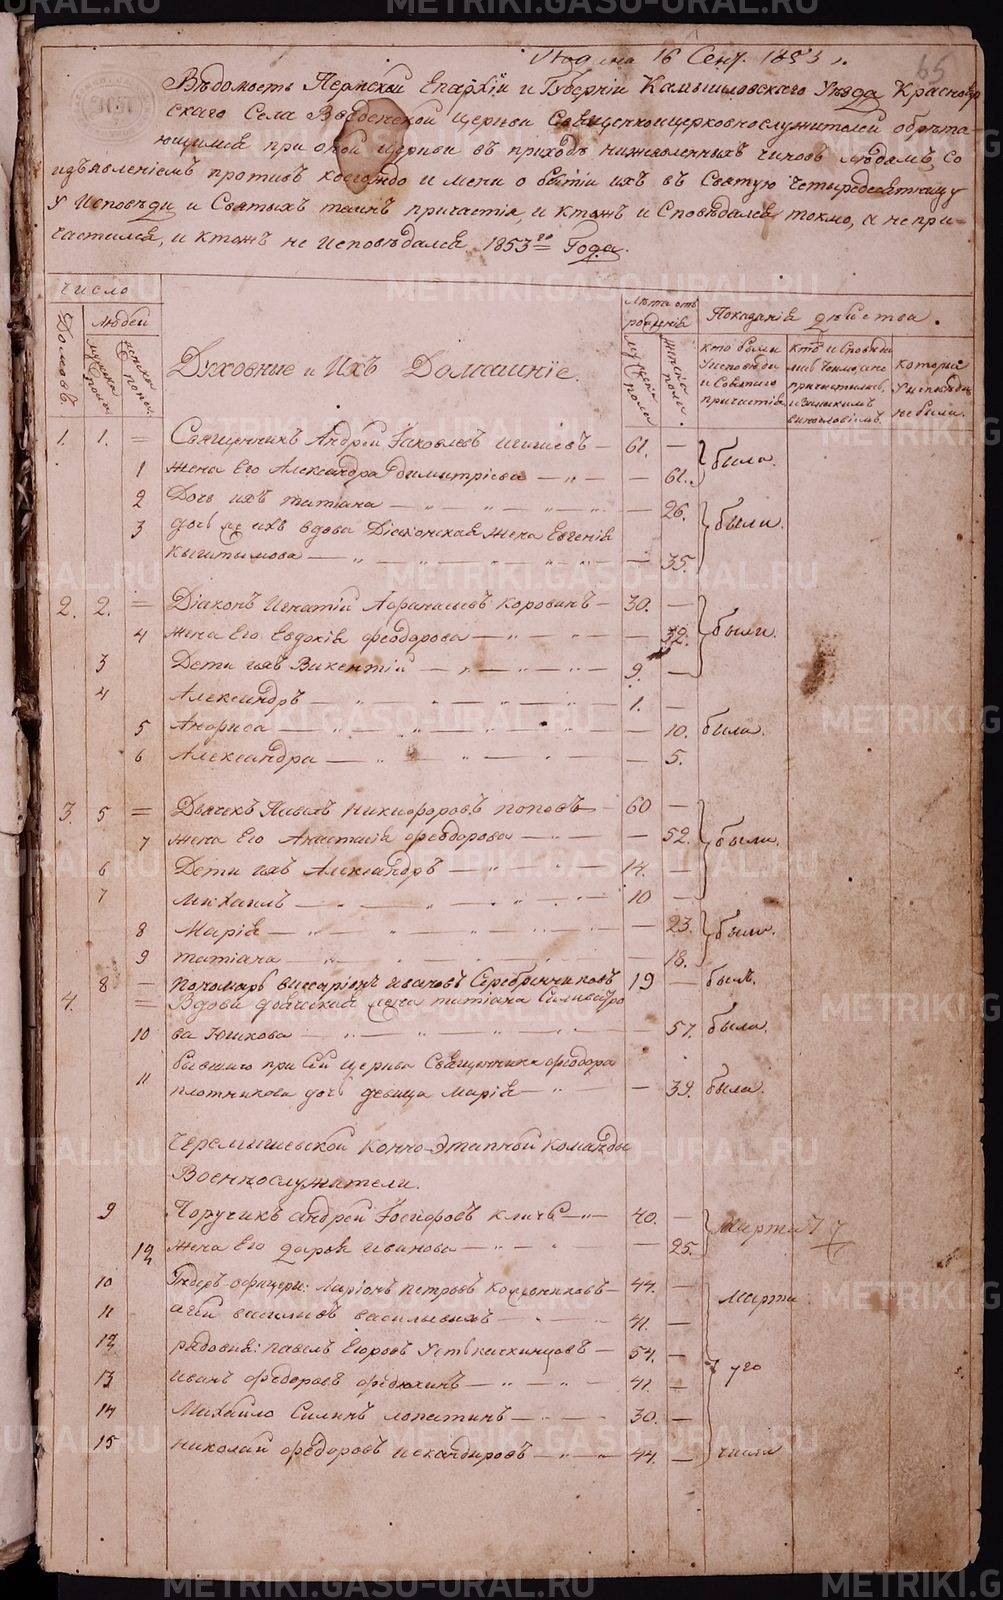 METRIKI.GASO-URAL.RU
16 Сент. 1853 г.
65
Вѣдомость Пермской Епархіи и Губерніи Камышловскаго Уѣзда Краснояр
скаго Села Введенской церкви Священноицерковнослужителей обрѣта-
ющимся при оной церкви въ приходѣ нижеявленныхъ чиновъ людемъ, со
изъявленіемъ противъ коегождо имени о бытіи ихъ въ Святую Четыредесятницу
У Исповѣди и Святыхъ таинъ причастія, и ктожъ и Сповѣдался токмо, а не при-
частился, и ктожъ не исповѣдался 1853го Года.
Число
Домовъ.
Людей
мужска пола
женска пола
Духовные и Ихъ Домашніе.
Лѣта отъ рожденія
мужска пола
женска пола.
Показанія дѣйства.
кто были Уисповѣди и Святаго причастія
Которые Уисповѣди не были.
1. 1. = Священникъ Андрей Іаковлевъ — 61. — были.
1 жена Его Александра Димитріева — „ — — 61.
2 Дочь ихъ татіана — „ — 26. были.
3 дочь же ихъ вдова Діаконская жена Евгенія
Кыштымова — „ — 35.
2. 2. = Діаконъ Игнатій Афанасьевъ Коровинъ — 30. — были.
4 жена Его Евдокія Феодорова — „ — 32.
3 Дети ихъ Викентій — „ — 9. —
4 Александръ — „ — 1. —
5 — „ — 10. была.
6 Александра — „ — 5.
3. 5 = Дьячекъ Павелъ Никифоровъ поповъ — 60 — были.
7 жена Его Анастасія Феодорова — „ — 52.
6 Дети ихъ Александръ — „ — 14. —
7 Михаилъ — „ — 10 —
8 Марія — „ — 23. были.
9 татіана — „ — 18.
8 — пономарь виссаріонъ ивановъ Серебренниковъ 19 — былъ.
4. = Вдова дьячекская жена татіана Силивестро
10 ва Юшкова — „ — 57. была.
бывшаго при Сей церкви Священника Феодора
11 плотникова дочь девица Марія — „ — 39. была.
Черемышевской Конно-Этапной команды
Военнослужители.
9 Поручикъ андрей — „ — 40. — Марта 7
12 жена Его дарья иванова — „ — 25.
10 Ундеръ-офицеры: Ларіонъ петровъ — 44. — Марта
11 василіевъ — „ — 41. —
12 рядовые: павелъ Егоровъ — 54. — 7 го
13 иванъ Федоровъ федюхинъ — „ — 41. —
14 Михайло Силинъ лопатинъ — „ — 30. —
15 николай федоровъ — „ — 44. — числа